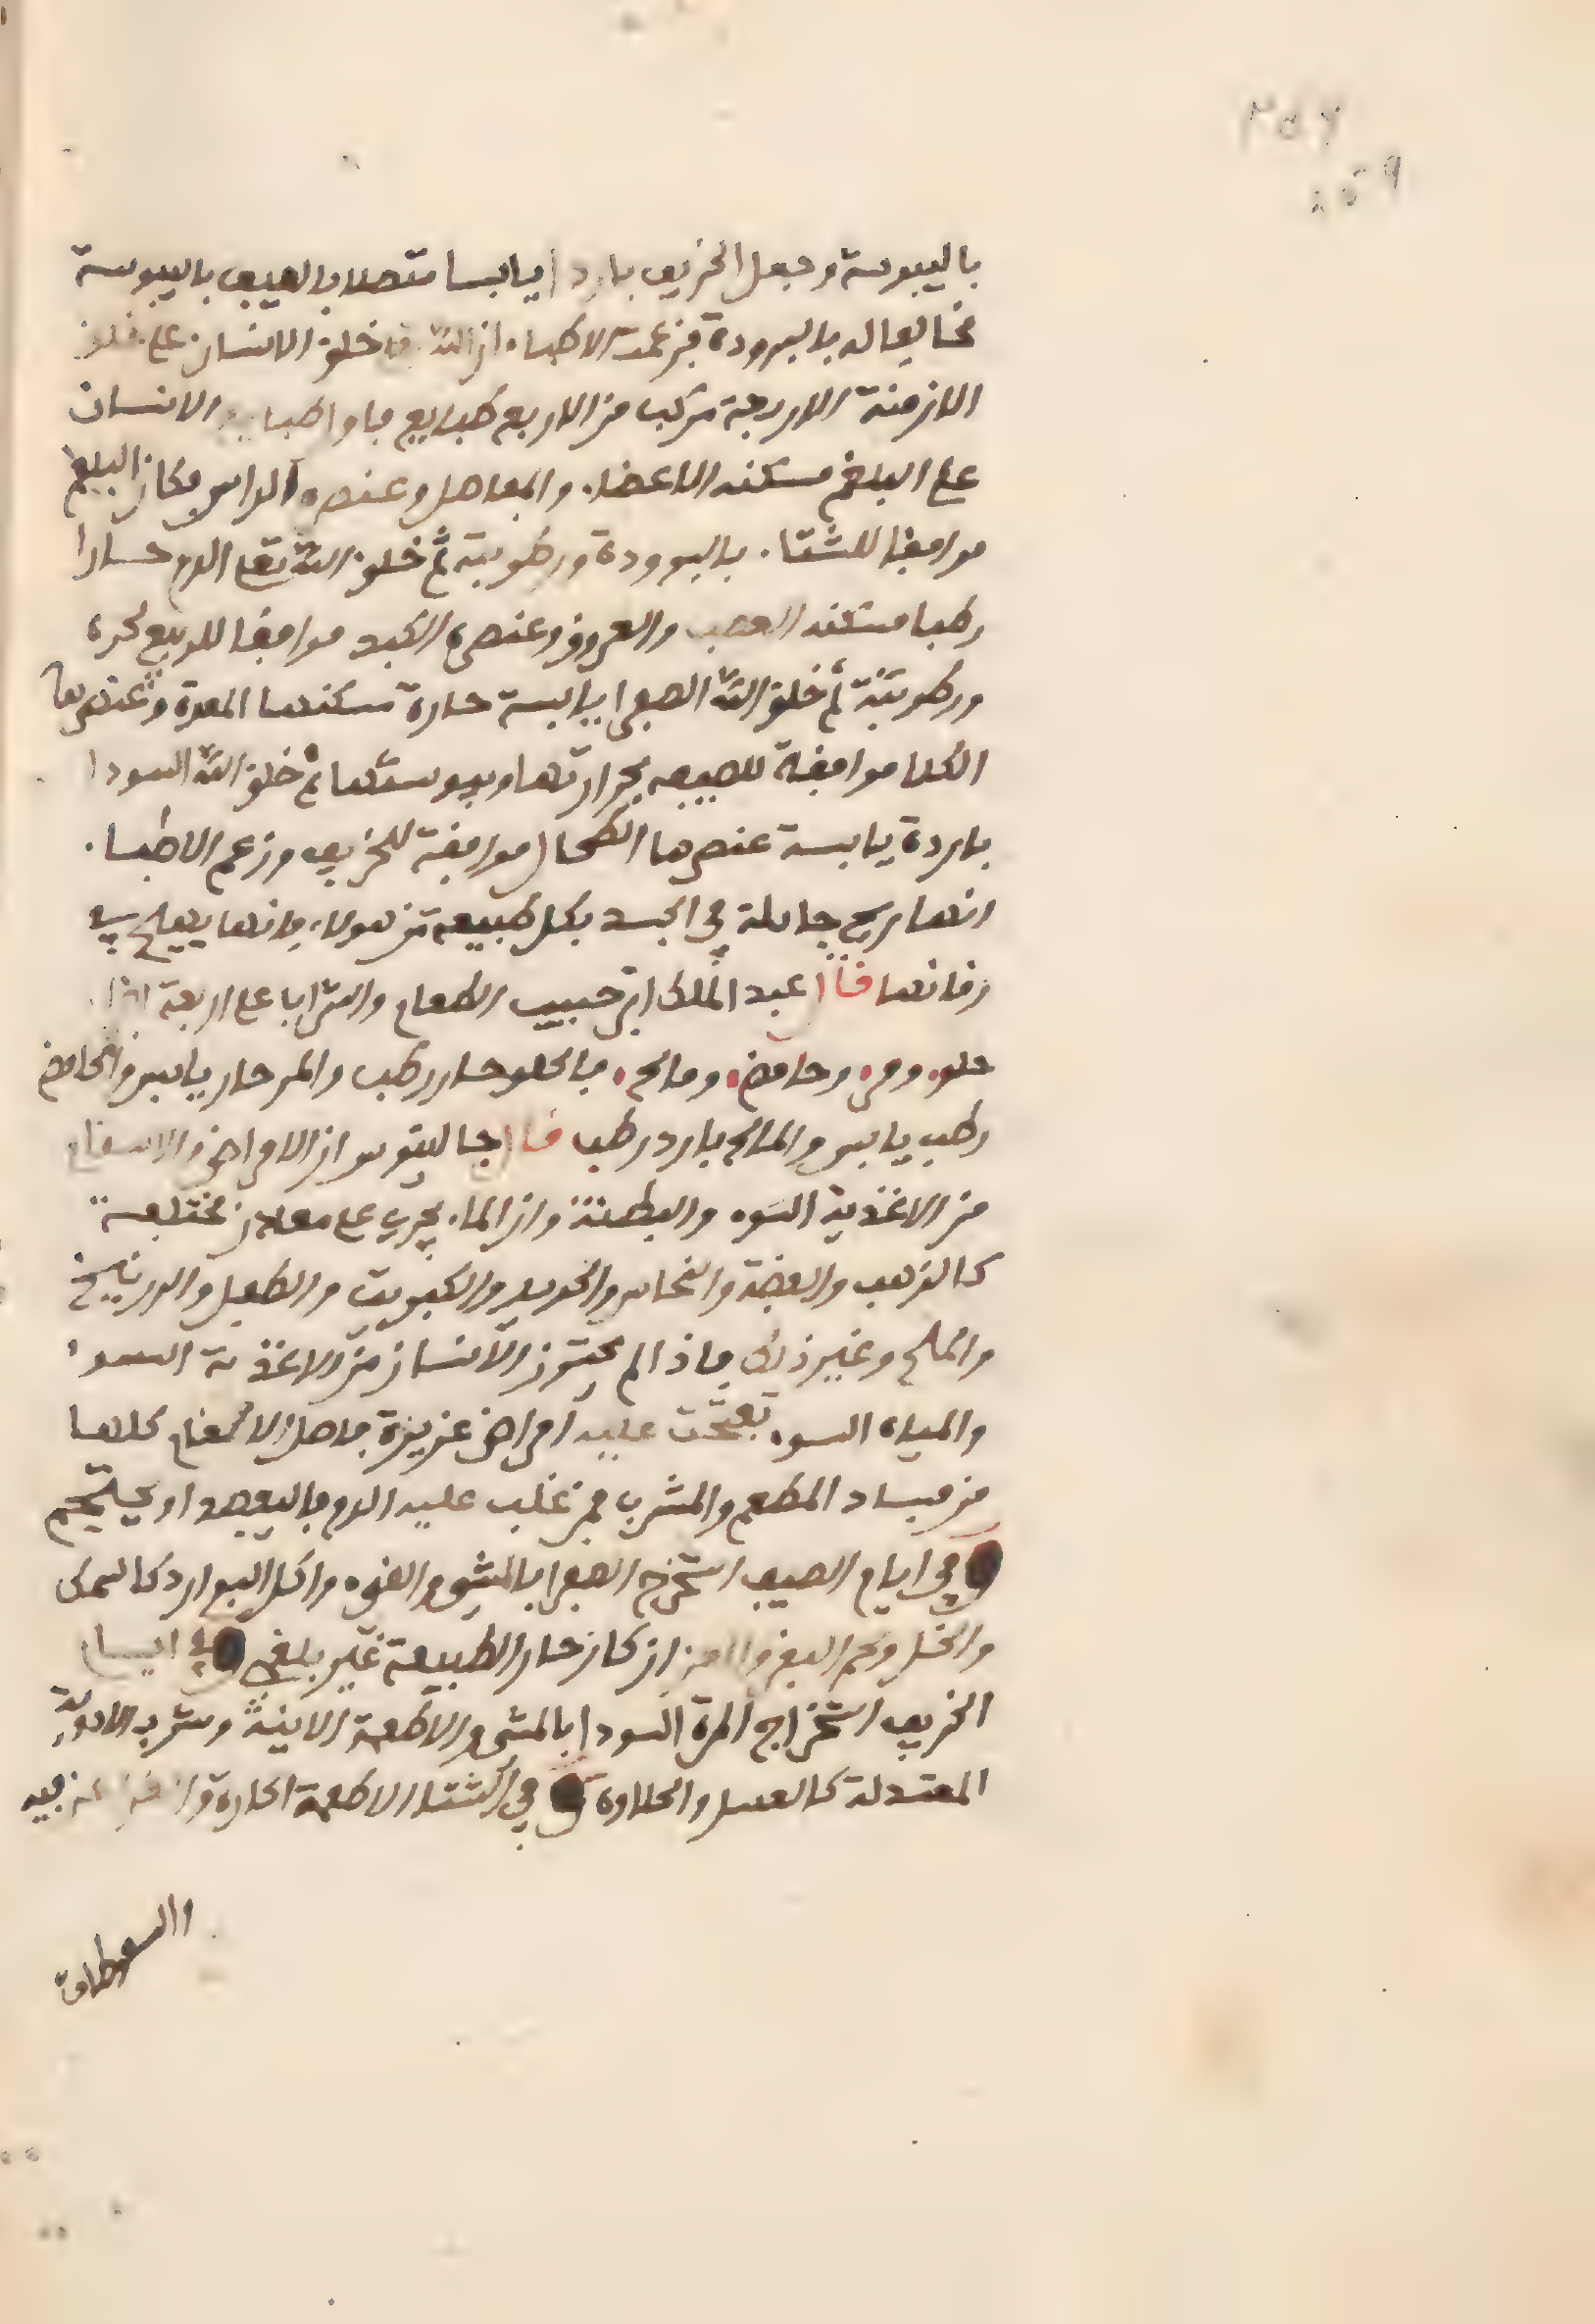 باليبوسة وجعل الخريف باردا يابسا متصلا بالصيف باليبوسة
مخالفا له بالبرودة فزعمت الاطباء ان الله خلق الانسان على خلق
الازمنة الاربعة مركب من الاربع طبايع الانسان
على البلغم مسكنه الاعضاء والمفاصل وعنصره الراس فكان البلغم
موافقا للشتاء بالبرودة ورطوبتة ثم خلق الله تعلى الدم حارا
رطبا مسكنه العصب والعروق وعنصره الكبد موافقا للربيع لحره
ورطوبتة ثم خلق الله الصفرا يابسة حارة مسكنها المعدة وعنصرها
الكلا موافقة للصيف بحرارتها ويبوستها ثم خلق الله السودا
باردة يابسة عنصرها الطحال موافقة للخريف وزعم الاطباء
انها ريح جايلة في الجسد بكل طبيعة من هولاء فانها يهيج في
زمانها قال عبد الملك ابن حبيب الطعام والشراب على اربعة
حلو ومر وحامض ومالح فالحلو حار رطب والمر حار يابس والحامض
رطب يابس والمالح بارد رطب قال جالينوس ان الامراض والاسقام
من الاغذية السوء والبطنة وان الماء يجري على معادن مختلفة
كالذهب والفضة والنحاس والحديد والكبريت والطفل والزرنيخ
والملح وغير ذلك فاذا لم يحترز الانسان من الاغذية السوء
والمياه السوء عليه امراض عزيزة فاصل الاسقام كلها
من فساد المطعم والمشرب فمن غلب عليه الدم فاليفصد او يحتجم
في ايام الصيف استخرج الصفرا بالمشي والقيء واكل البوارد كالسمك
والخل ولحم البقر ان كان حار الطبيعة غير بلغمي وفي ايام
الخريف استخراج المرة السودا بالمشي والاطعمة الاينة وشرب الادوية
المعتدلة كالعسل والحلاوة وفي الشتا الاطعمة الحارة